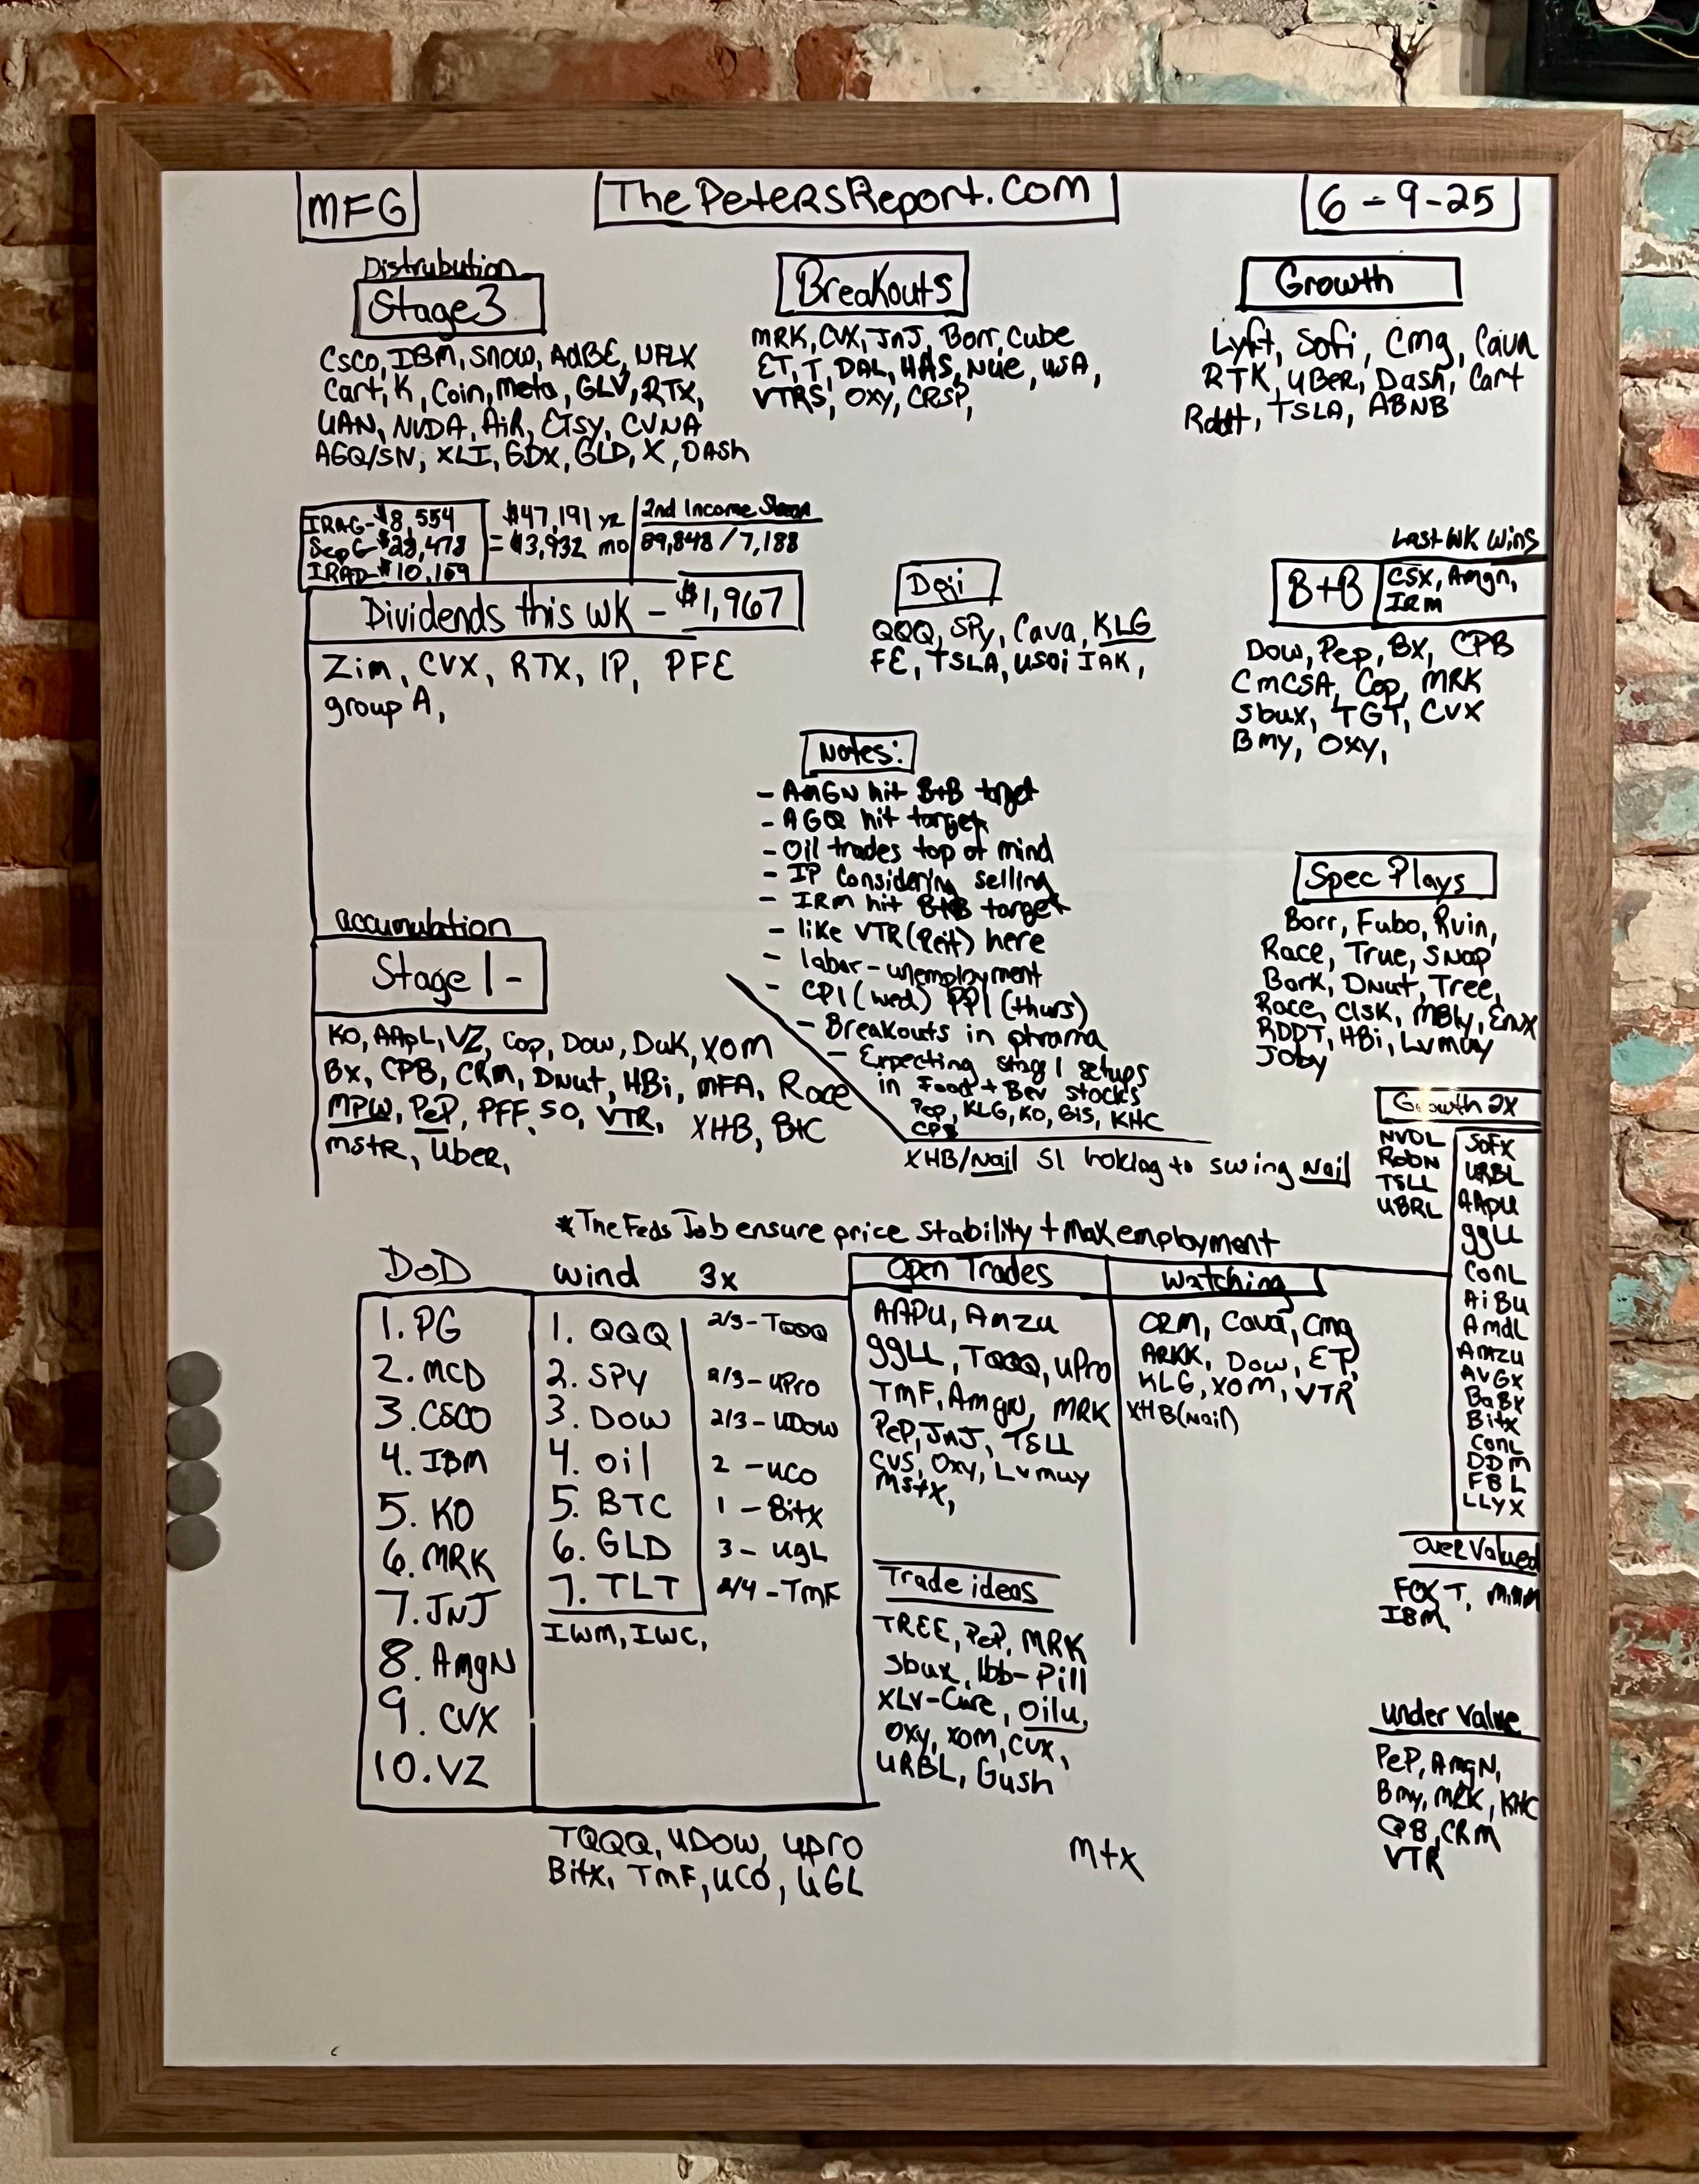 MFG
ThePetersReport.com
6-9-25
Distrubution
Stage 3
Csco, IBM, Snow, AdBE, NFLX
Cart, K, Coin, Meta, GLV, RTX,
UAN, NVDA, AiR, Etsy, CVNA
AGQ/SIV, XLI, GDX, GLD, X, DASH
Breakouts
MRK, CVX, JnJ, Borr, Cube
ET, T, DAL, HAS, Nue, USA,
VTRS, OXY, CRSP,
Growth
Lyft, Sofi, Cmg, Cava
RTK, UBER, Dash, Cart
Rddt, TSLA, ABNB
IRAG-$8,554
SepG $28,478
IRAD-$10,159
$47,191 yr
= $3,932 mo
2nd Income
89,848 / 7,188
Dividends this WK - $1,967
Zim, CVX, RTX, IP, PFE
group A,
Doji
QQQ, SPy, Cava, KLG
FE, TSLA, USOi IAK,
Last WK Wins
B+B
CSX, Amgn,
IRM
Dow, Pep, BX, CPB
CmCSA, Cop, MRK
Sbux, TGT, CVX
Bmy, OXY,
Notes:
- AmGN hit B+B target
- AGQ hit target
- Oil trades top of mind
- IP Considering selling
- IRM hit B+B target
- like VTR (Reit) here
- labor-unemployment
- CPI (wed) PPI (thurs)
- Breakouts in phrama
- Expecting stage 1 setups
in Food + Bev stocks
Pep, KLG, KO, Gis, KHC
CPB
XHB/Nail S1 looking to swing Nail
Spec Plays
Borr, Fubo, Rvin,
Race, True, SNAP
Bark, Dnut, Tree,
Race, Clsk, MBly, Envx
RDDT, HBi, Lvmuy
Joby
accumulation
Stage 1 -
KO, AApL, VZ, Cop, Dow, Duk, XOM
BX, CPB, CRM, Dnut, HBi, MFA, Race
MPW, PeP, PFF, SO, VTR, XHB, BtC
mstr, Uber,
Growth 2x
NVDL
Robn
TSLL
UBRL
SOFX
URBL
AApu
ggLL
ConL
AiBu
AmdL
Amzu
AVGX
BaBX
Bitx
ConL
DDM
FBL
LLYX
*The Feds Job ensure price stability + max employment
DoD
1. PG
2. MCD
3. CSCO
4. IBM
5. KO
6. MRK
7. JNJ
8. AmgN
9. CVX
10. VZ
Wind 3x
1. QQQ 2/3-TQQQ
2. SPY 2/3-uPro
3. Dow 2/3-UDow
4. oil 2-uco
5. BTC 1-Bitx
6. GLD 3-ugL
7. TLT 2/4-TmF
IWM, IWC,
Open Trades
AAPU, Amzu
ggLL, TQQQ, uPro
TmF, AmgN, MRK
PeP, JnJ, TSLL
CVS, Oxy, Lvmuy
Mstx,
Watching
CRM, Cava, Cmg
ARKK, Dow, ET,
KLG, XOM, VTR
XHB(Nail)
Trade ideas
TREE, PeP, MRK
Sbux, lbb-Pill
XLV-Cure, Oilu,
OXY, XOM, CVX,
URBL, Gush
over Valued
FOX T, MMM
IBM,
under Value
PeP, AmgN,
Bmy, MRK, KHC
QB, CRM
VTR
TQQQ, UDOW, upro
Bitx, TmF, UCO, UGL
mtx